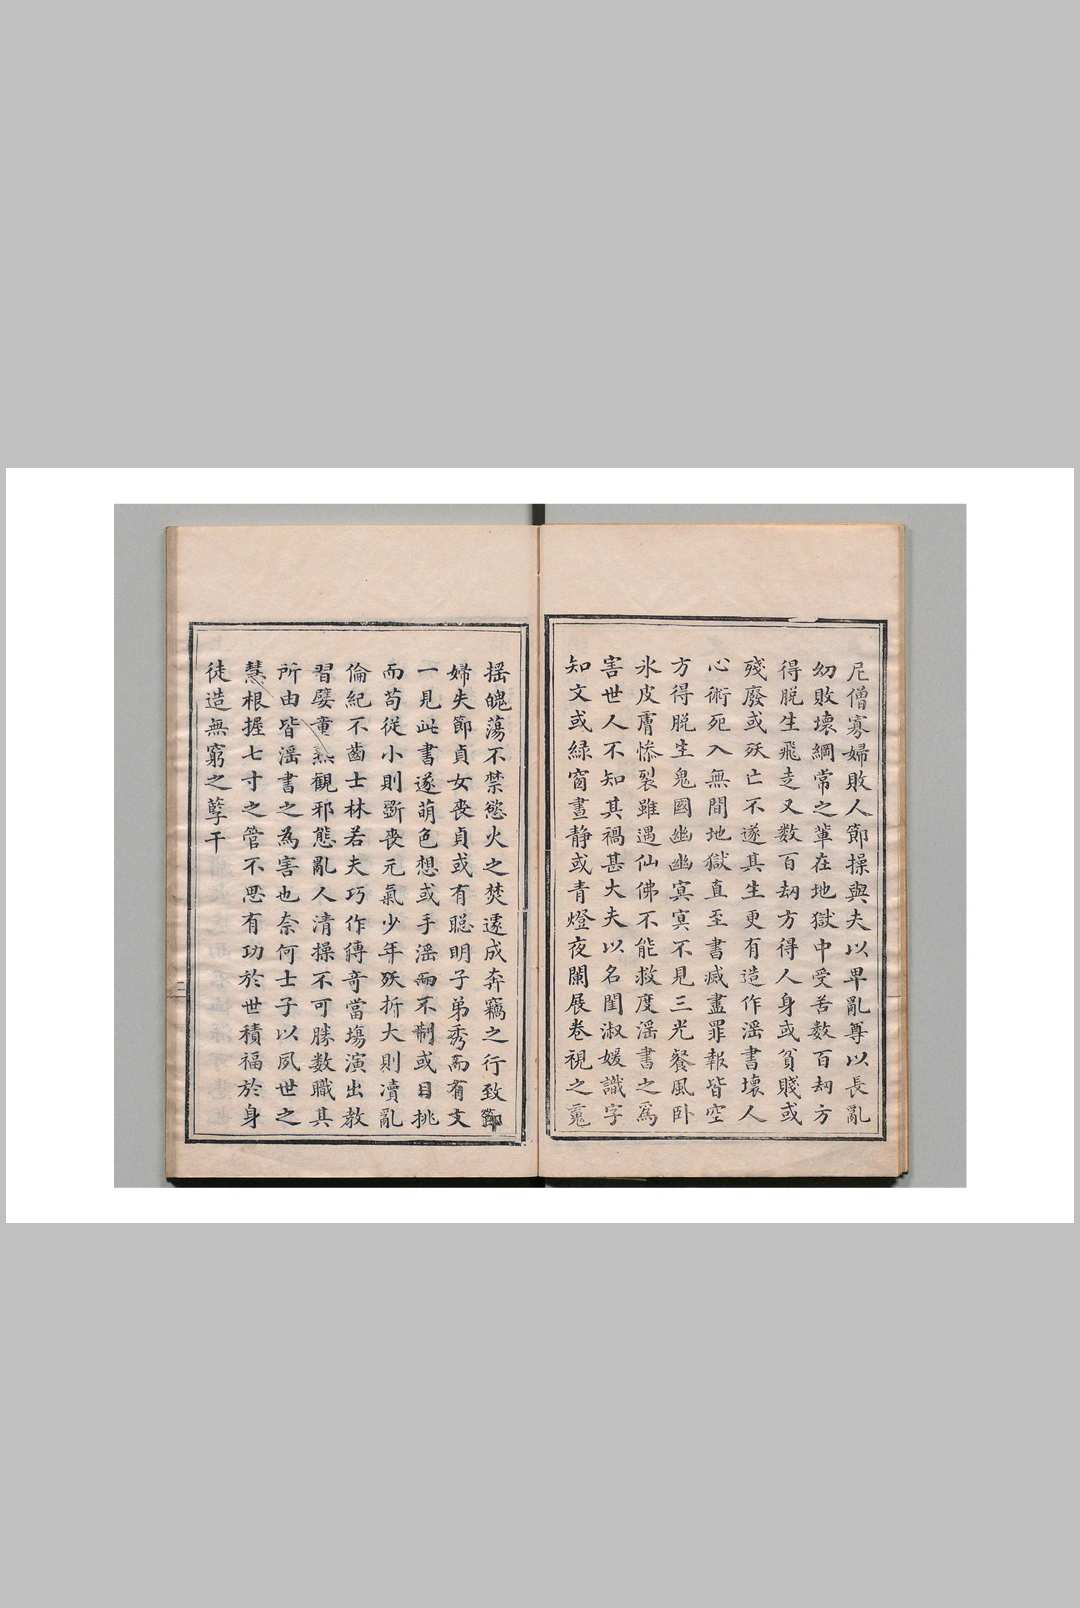 尼僧寡婦敗人節操與夫以卑亂尊以長亂
幼敗壞綱常之輩在地獄中受苦數百刼方
得脫生飛走又數百刼方得人身或貧賤或
殘廢或殀亡不遂其生更有造作滛書壞人
心術死入無間地獄直至書滅盡罪報皆空
方得脫生鬼國幽幽冥冥不見三光餐風卧
氷皮膚慘裂雖遇仙佛不能救度滛書之爲
害世人不知其禍甚大夫以名閨淑媛識字
知文或緑窗晝静或青燈夜闌展卷視之䰟
揺魄蕩不禁慾火之焚遽成奔竊之行致節
婦失節貞女喪貞或有聪明子弟秀而有文
一見此書遂萌色想或手滛而不制或目挑
而苟從小則斵喪元氣少年殀折大則瀆亂
倫紀不齒士林若夫巧作傳奇當塲演出教
習孌童觀邪態亂人清操不可勝數職其
所由皆滛書之為害也奈何士子以夙世之
慧根握七寸之管不思有功於世積福於身
徒造無窮之孽干
二